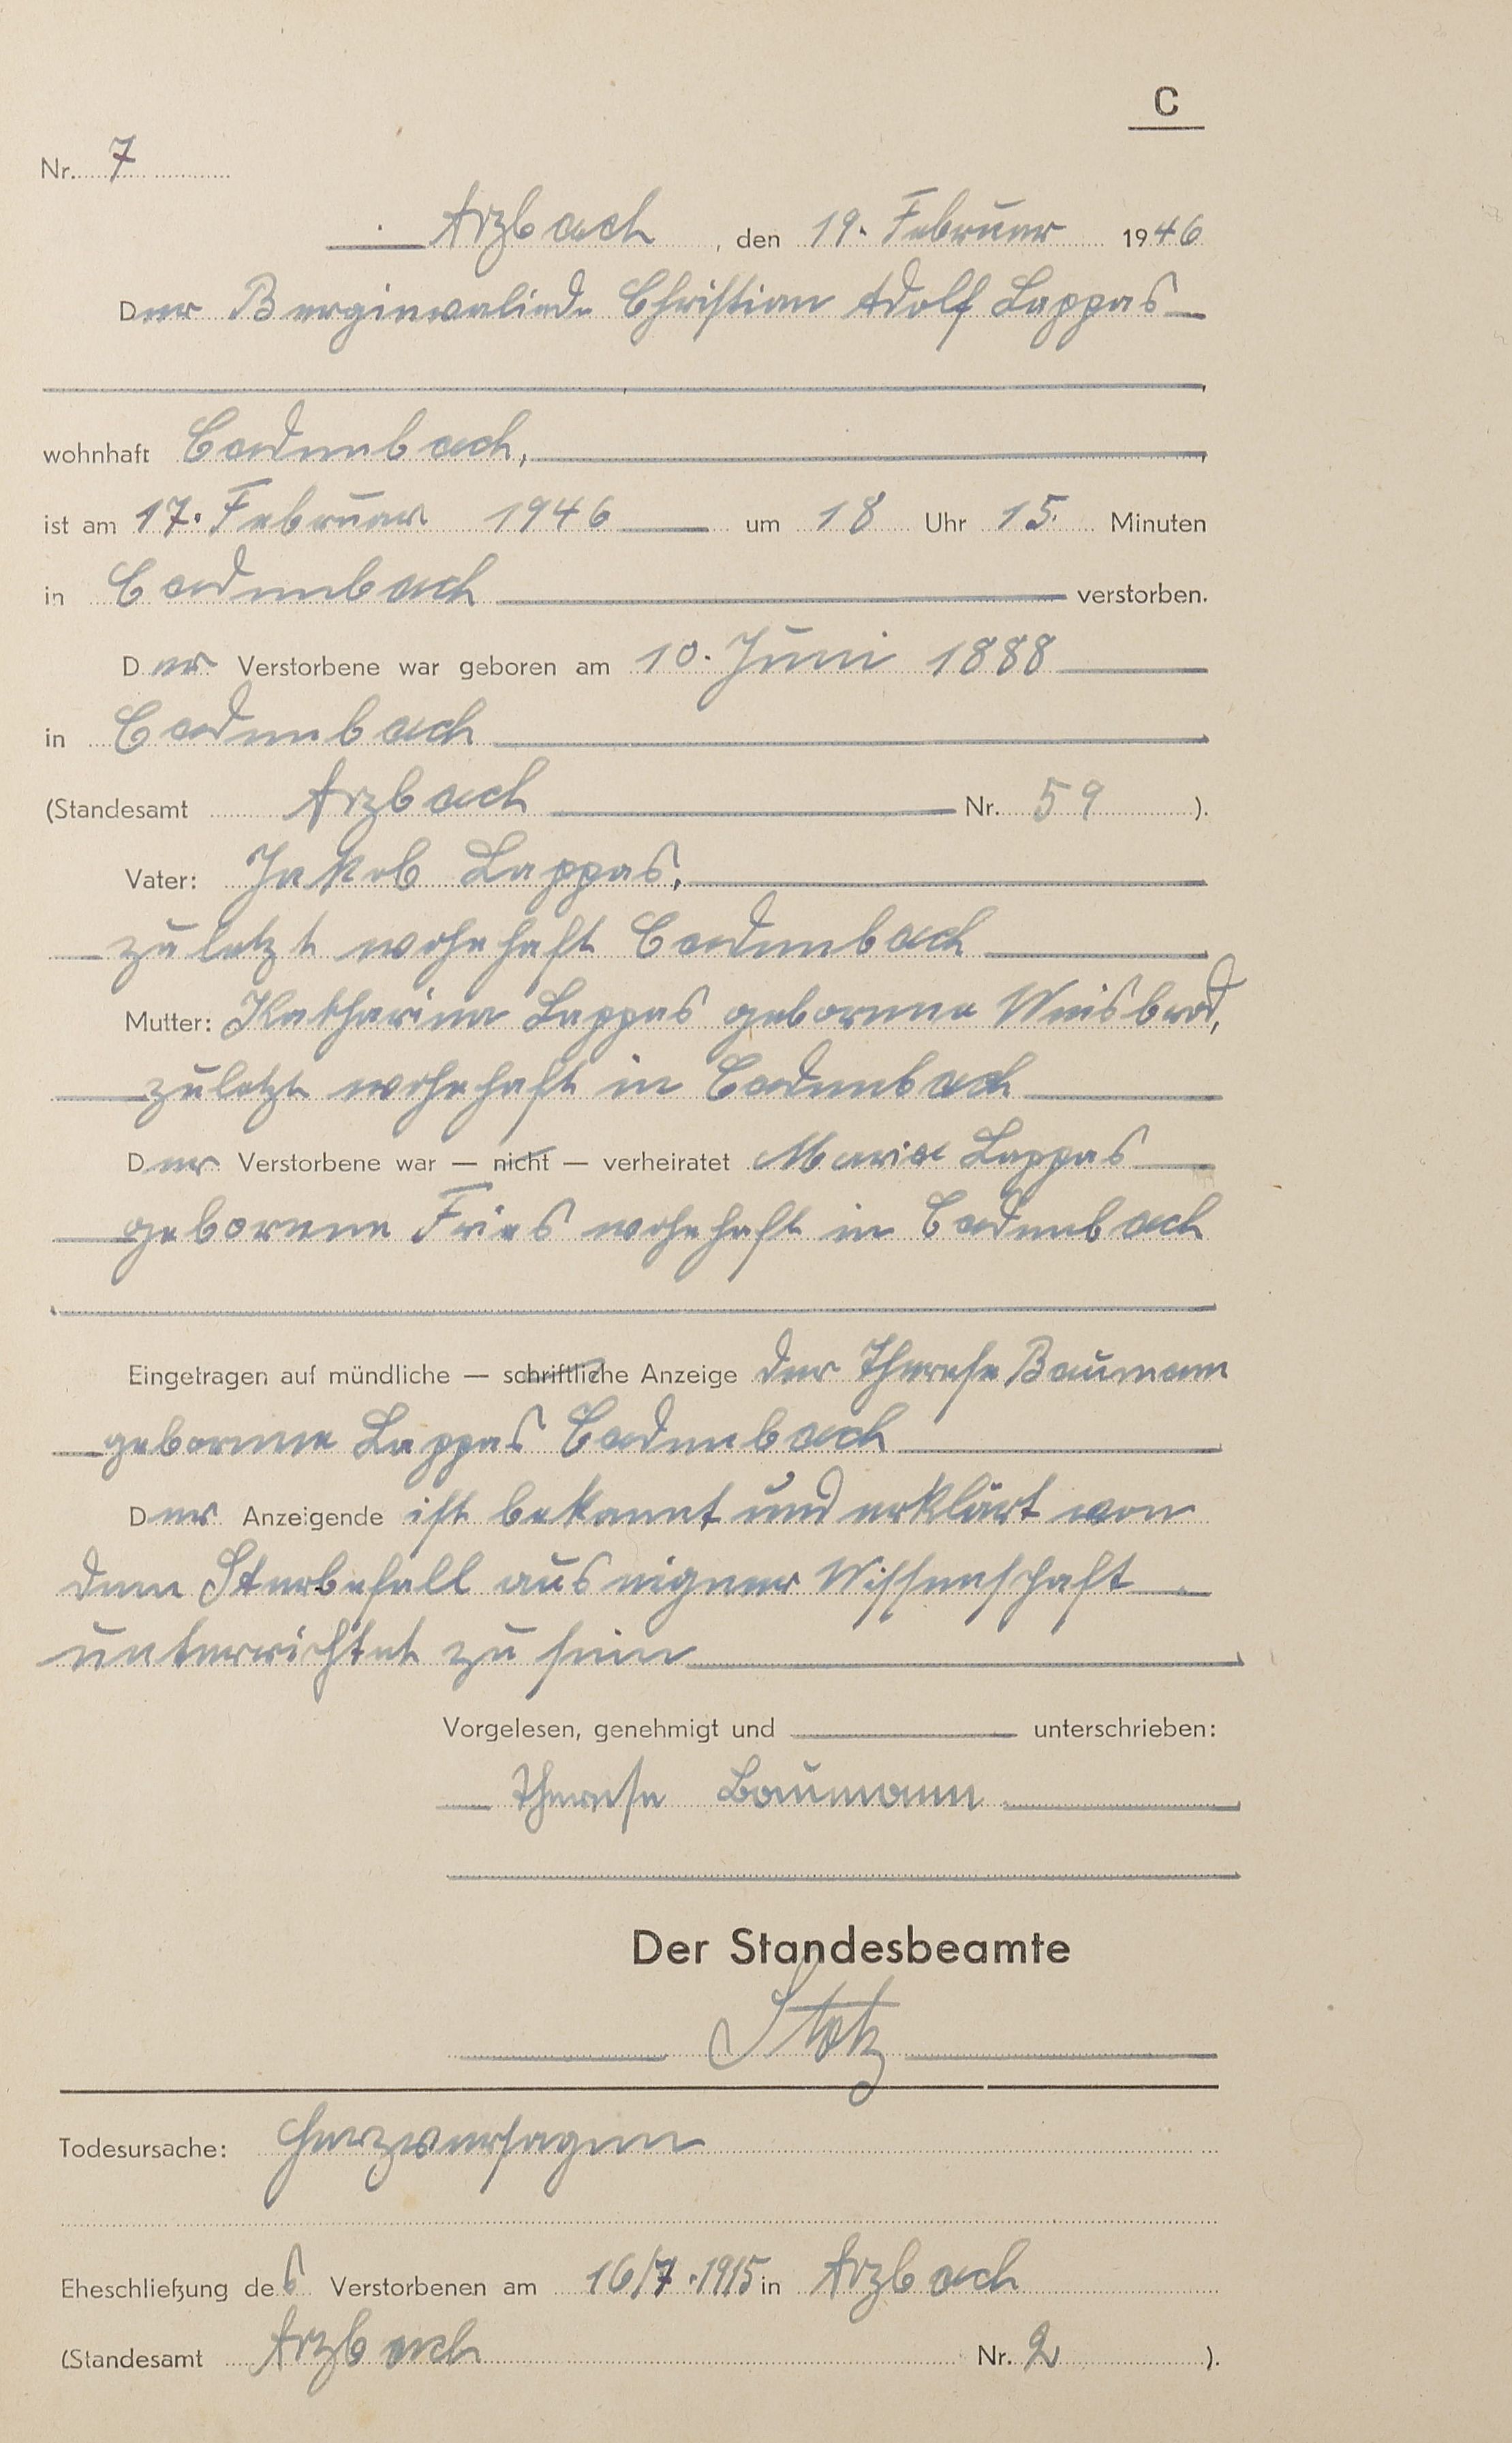 C
Nr. 7
Arzbach, den 19. Februar 1946
Der Berginvalide Christian Adolf Lappas
wohnhaft Cadenbach,
ist am 17. Februar 1946 um 18 Uhr 15 Minuten
in Cadenbach verstorben.
Der Verstorbene war geboren am 10. Juni 1888
in Cadenbach
(Standesamt Arzbach Nr. 59 ).
Vater: Jakob Lappas,
zuletzt wohnhaft Cadenbach
Mutter: Katharina Lappas geborene Weisbrod,
zuletzt wohnhaft in Cadenbach
Der Verstorbene war — nicht — verheiratet Maria Lappas
geborene Fries wohnhaft in Cadenbach
Eingetragen auf mündliche — schriftliche Anzeige der Therese Baumann
geborene Lappas Cadenbach
Der Anzeigende ist bekannt und erklärt von
dem Sterbefall aus eigner Wissenschaft
unterrichtet zu sein
Vorgelesen, genehmigt und unterschrieben:
Therese Baumann
Der Standesbeamte
Stotz
Todesursache: Herzversagen
Eheschließung des Verstorbenen am 16/7.1915 in Arzbach
(Standesamt Arzbach Nr. 2 ).